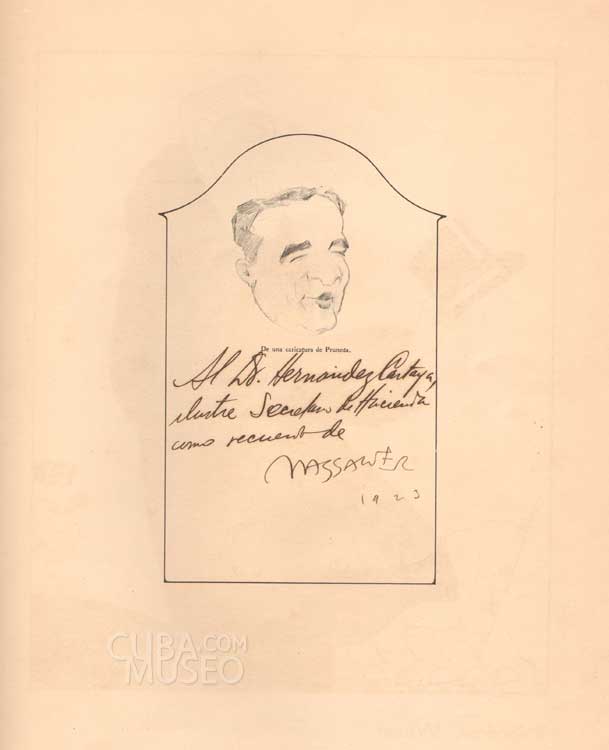 De una caricatura de Pruneda.
Al Dr. Hernández Cartaya,
ilustre Secretario de Hacienda
como recuerdo de
MASSAGUER
1923
CUBA.COM
MUSEO